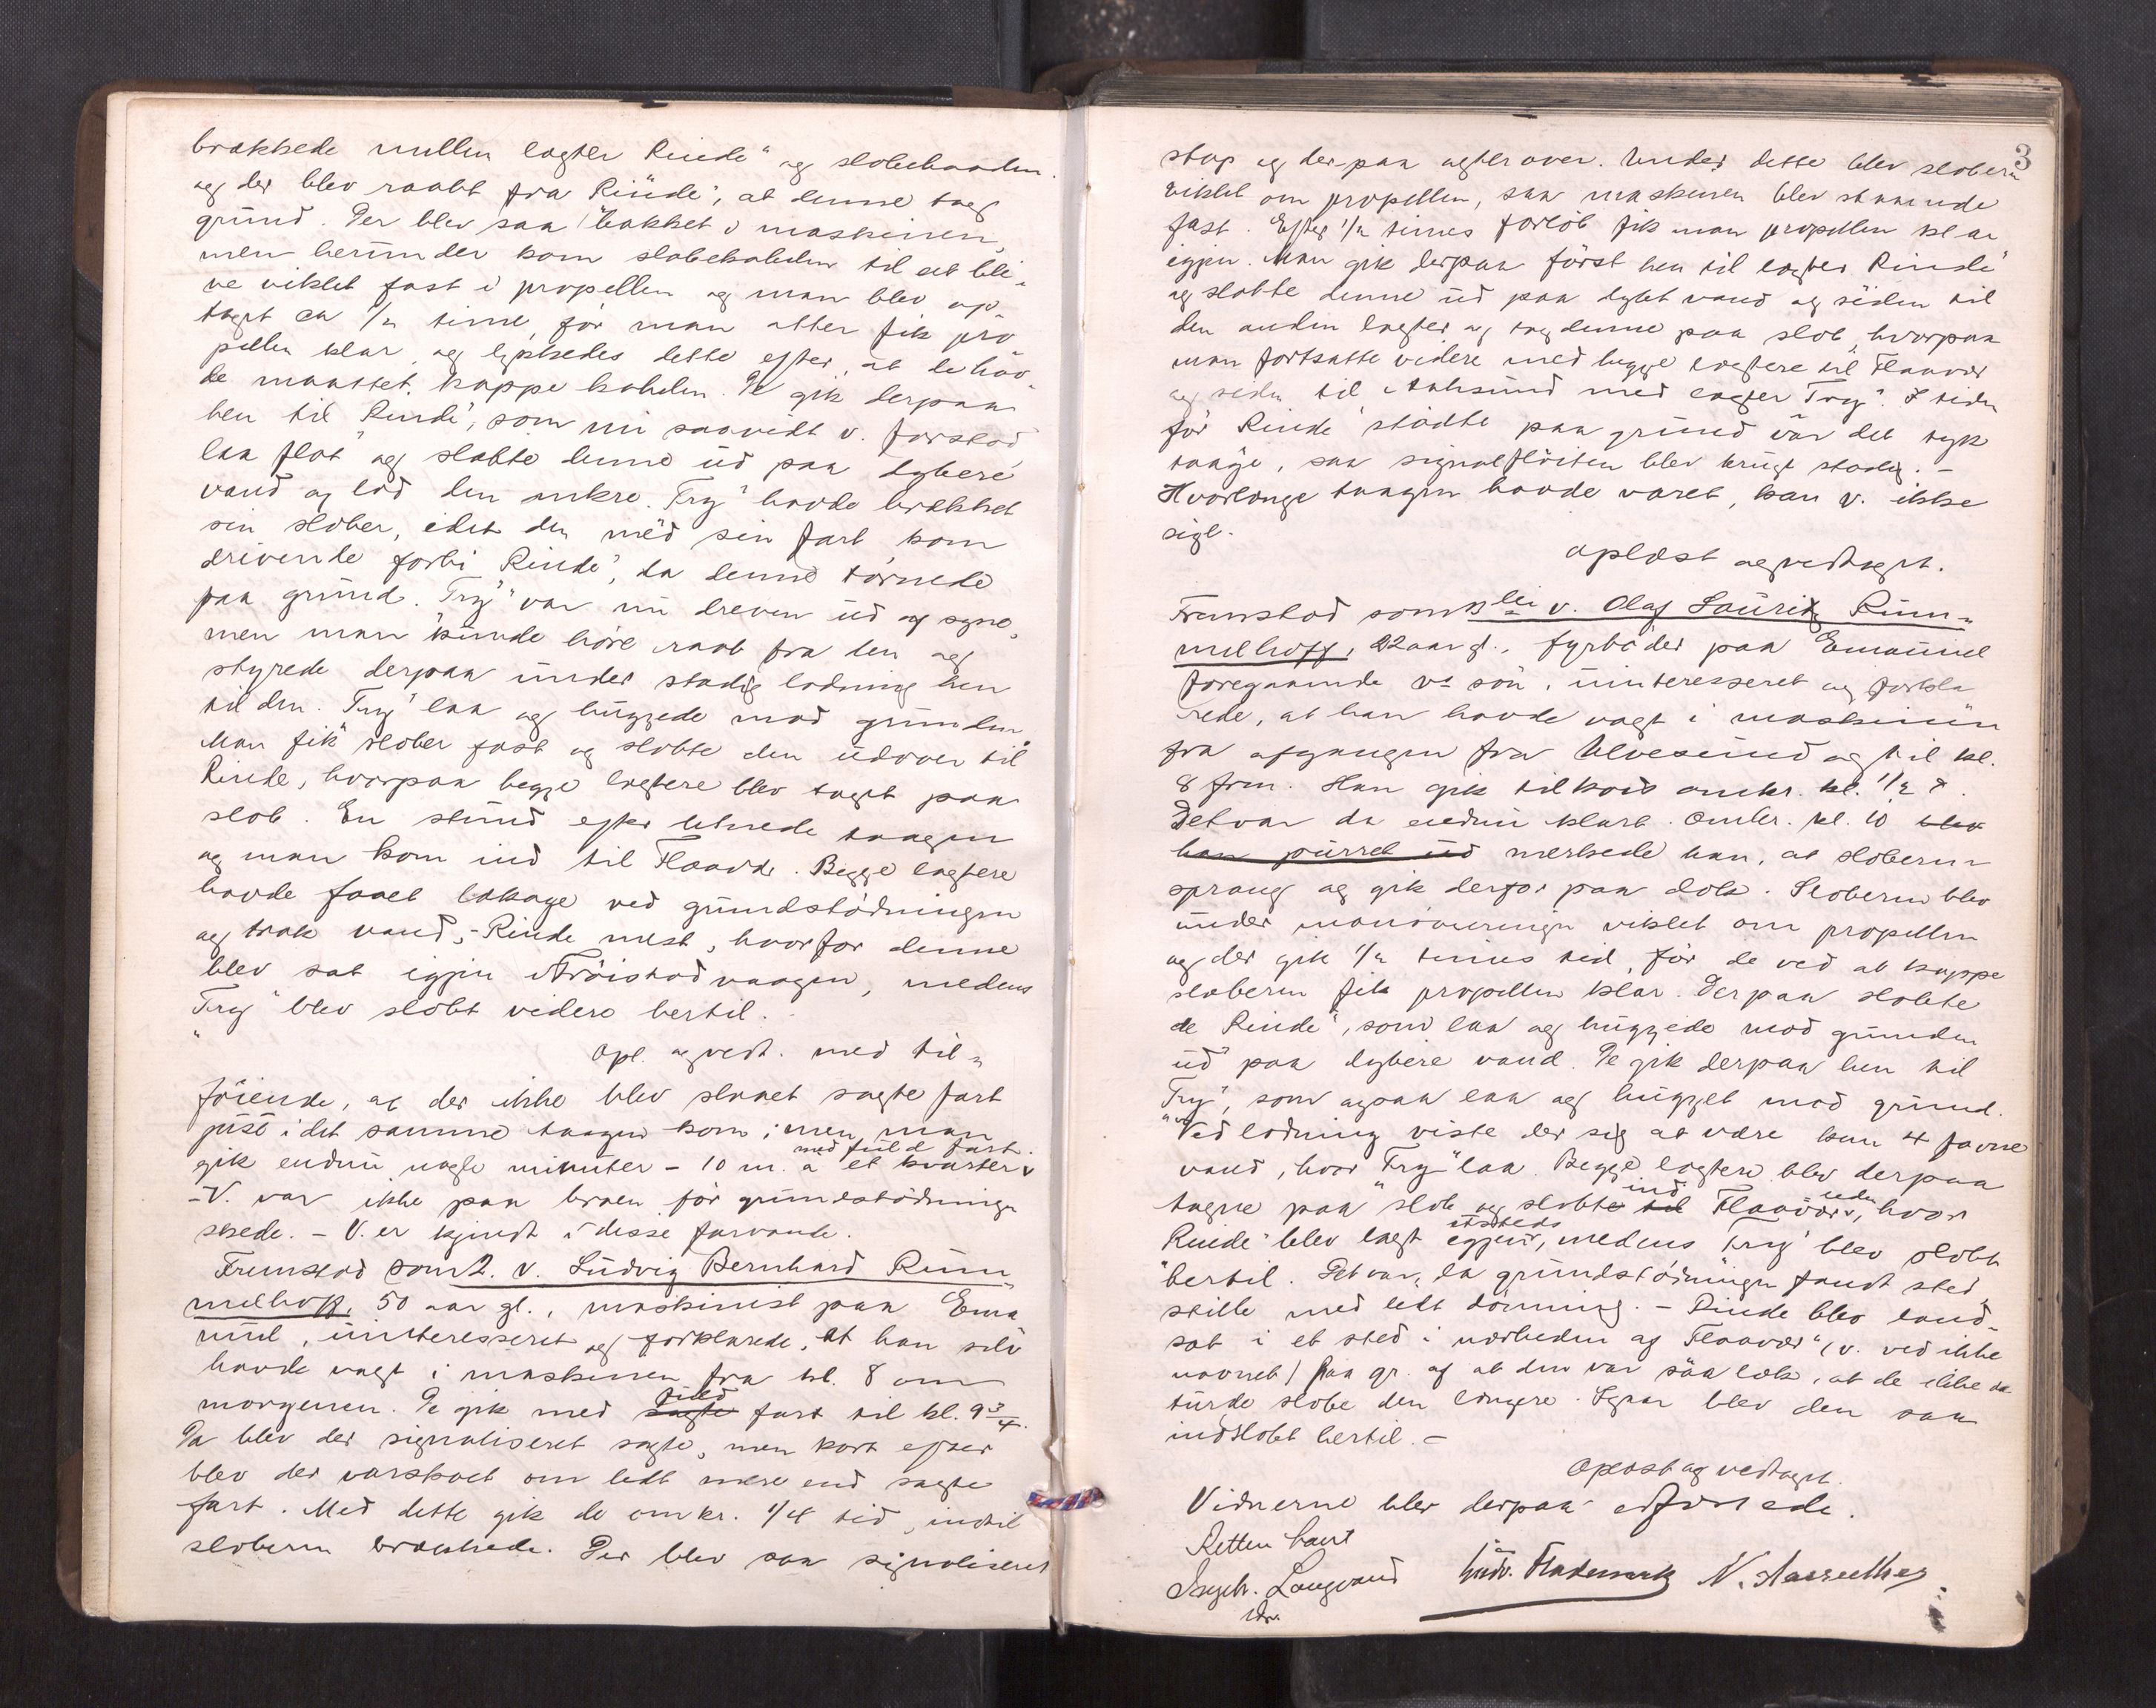 brækkede mellem lægter Rinde" og slæbebaaden.
og der blev raabt fra "Rinde", at denne tog
grund. Der blev saa bakket i maskinen,
men herunder kom slæbekabelen til at bli-
ve viklet fast i propellen og man blev op-
taget ca 1/2 time, før man atter fik pro
pellen klar, og lykkedes dette efter, at de hav-
de maattet kappe kabelen. De gik derpaa
hen til "Rinde", som nu saavidt v. forstod
laa flot og slæbte denne ud paa dybere
vand og lod den ankre. "Try" havde brækket
sin slæber, idet den med sin fart kom
drivende forbi "Rinde", da denne tørnede
paa grund. "Try" var nu dreven ud af syne,
men man kunde høre raab fra den og
styrede derpaa under stadig lodning hen
til den. "Try" laa og huggede mod grunden.
Man fik slæber fast og slæbte den udover til
Rinde, hvorpaa begge lægtere blev taget paa
slæb. En stund efter letnede taagen
og man kom ind til Flaavær. Begge lægtere
havde faaet lækage ved grundstødningen
og trak vand, - Rinde mest, hvorfor denne
blev sat igjen i Frøistadvaagen, medens
"Try" blev slæbt videre hertil.
Opl. og vedt. med til-
føiende, at der ikke blev slaaet sagte fart
just i det samme taagen kom; men man
gik endnu nogle minuter - 10 m. a et kvarter med fuld fart.
- V. var ikke paa broen før grundstødningen
skede. - V. er kjendt i disse farvande.
Fremstod som 2. v. Ludvig Bernhard Rum-
melhoff, 50 aar gl., maskinist paa Ema
nuel, uinteresseret og forklarede, at han selv
havde vagt i maskinen fra kl. 8 om
morgenen. De gik med sagte fuld fart til kl. 9 3/4.
Da blev der signaliseret sagte, men kort efter
blev der varskoet om lidt mere end sagte
fart. Med dette gik de omkr. 1/4 tid, indtil
slæberen brækkede. Der blev saa signaliseret
3
stop og derpaa agterover. Under dette blev slæberen
viklet om propellen, saa maskinen blev staaende
fast. Efter 1/2 times forløb fik man propellen klar
igjen. Man gik derpaa først hen til lægter "Rinde"
og slæbte denne ud paa dybt vand og siden til
den anden lægter og tog denne paa slæb, hvorpaa
man fortsatte videre med begge lægtere til Flaavær
og siden til Aalesund med lægter "Try". I tiden
før "Rinde" stødte paa grund var det tyk
taage, saa signalfløiten blev brugt stadig. -
Hvorlænge taagen havde varet, kan v. ikke
sige.
Oplæst og vedtaget.
Fremstod som 3die v. Olaf Lauritz Rum-
melhoff, 22 aar gl., fyrbøder paa Emanuel
foregaaende vs søn, uinteresseret og forkla
rede, at han havde vagt i maskinen
fra afgangen fra Ulvesund og til kl.
8 frm. Han gik tilkøis omkr. kl. 1/2 9.
Det var da endnu klart. Omkr. kl. 10 blev
han purret ud merkede han, at slæberen
sprang og gik derfor paa dæk. Slæberen blev
under manøvreringen viklet om propellen
og der gik 1/2 times tid, før de ved at kappe
slæberen fik propellen klar. Derpaa slæbte
de "Rinde", som laa og huggede mod grunden
ud paa dybere vand. De gik derpaa hen til
"Try", som ogsaa laa og hugget mod grund.
Ved lodning viste der sig at være kun 4 favne
vand, hvor "Try" laa. Begge lægtere blev derpaa
tagne paa slæb og slæbte til ind Flaavær, hvor
"Rinde" blev lagt igjen etsteds, medens "Try" blev slæbt
hertil. Det var, da grundstødningen fandt sted,
stille med lidt dønning. - Rinde blev land-
sat i et sted i nærheden af "Flaavær" (v. ved ikke
navnet) paa gr. af at den var saa læk, at de ikke
turde slæbe den længere. Igaar blev den saa
indslæbt hertil. -
Oplæst og vedtaget.
Vidnerne blev derpaa edfæstede.
Retten hævet
Langvand
N.